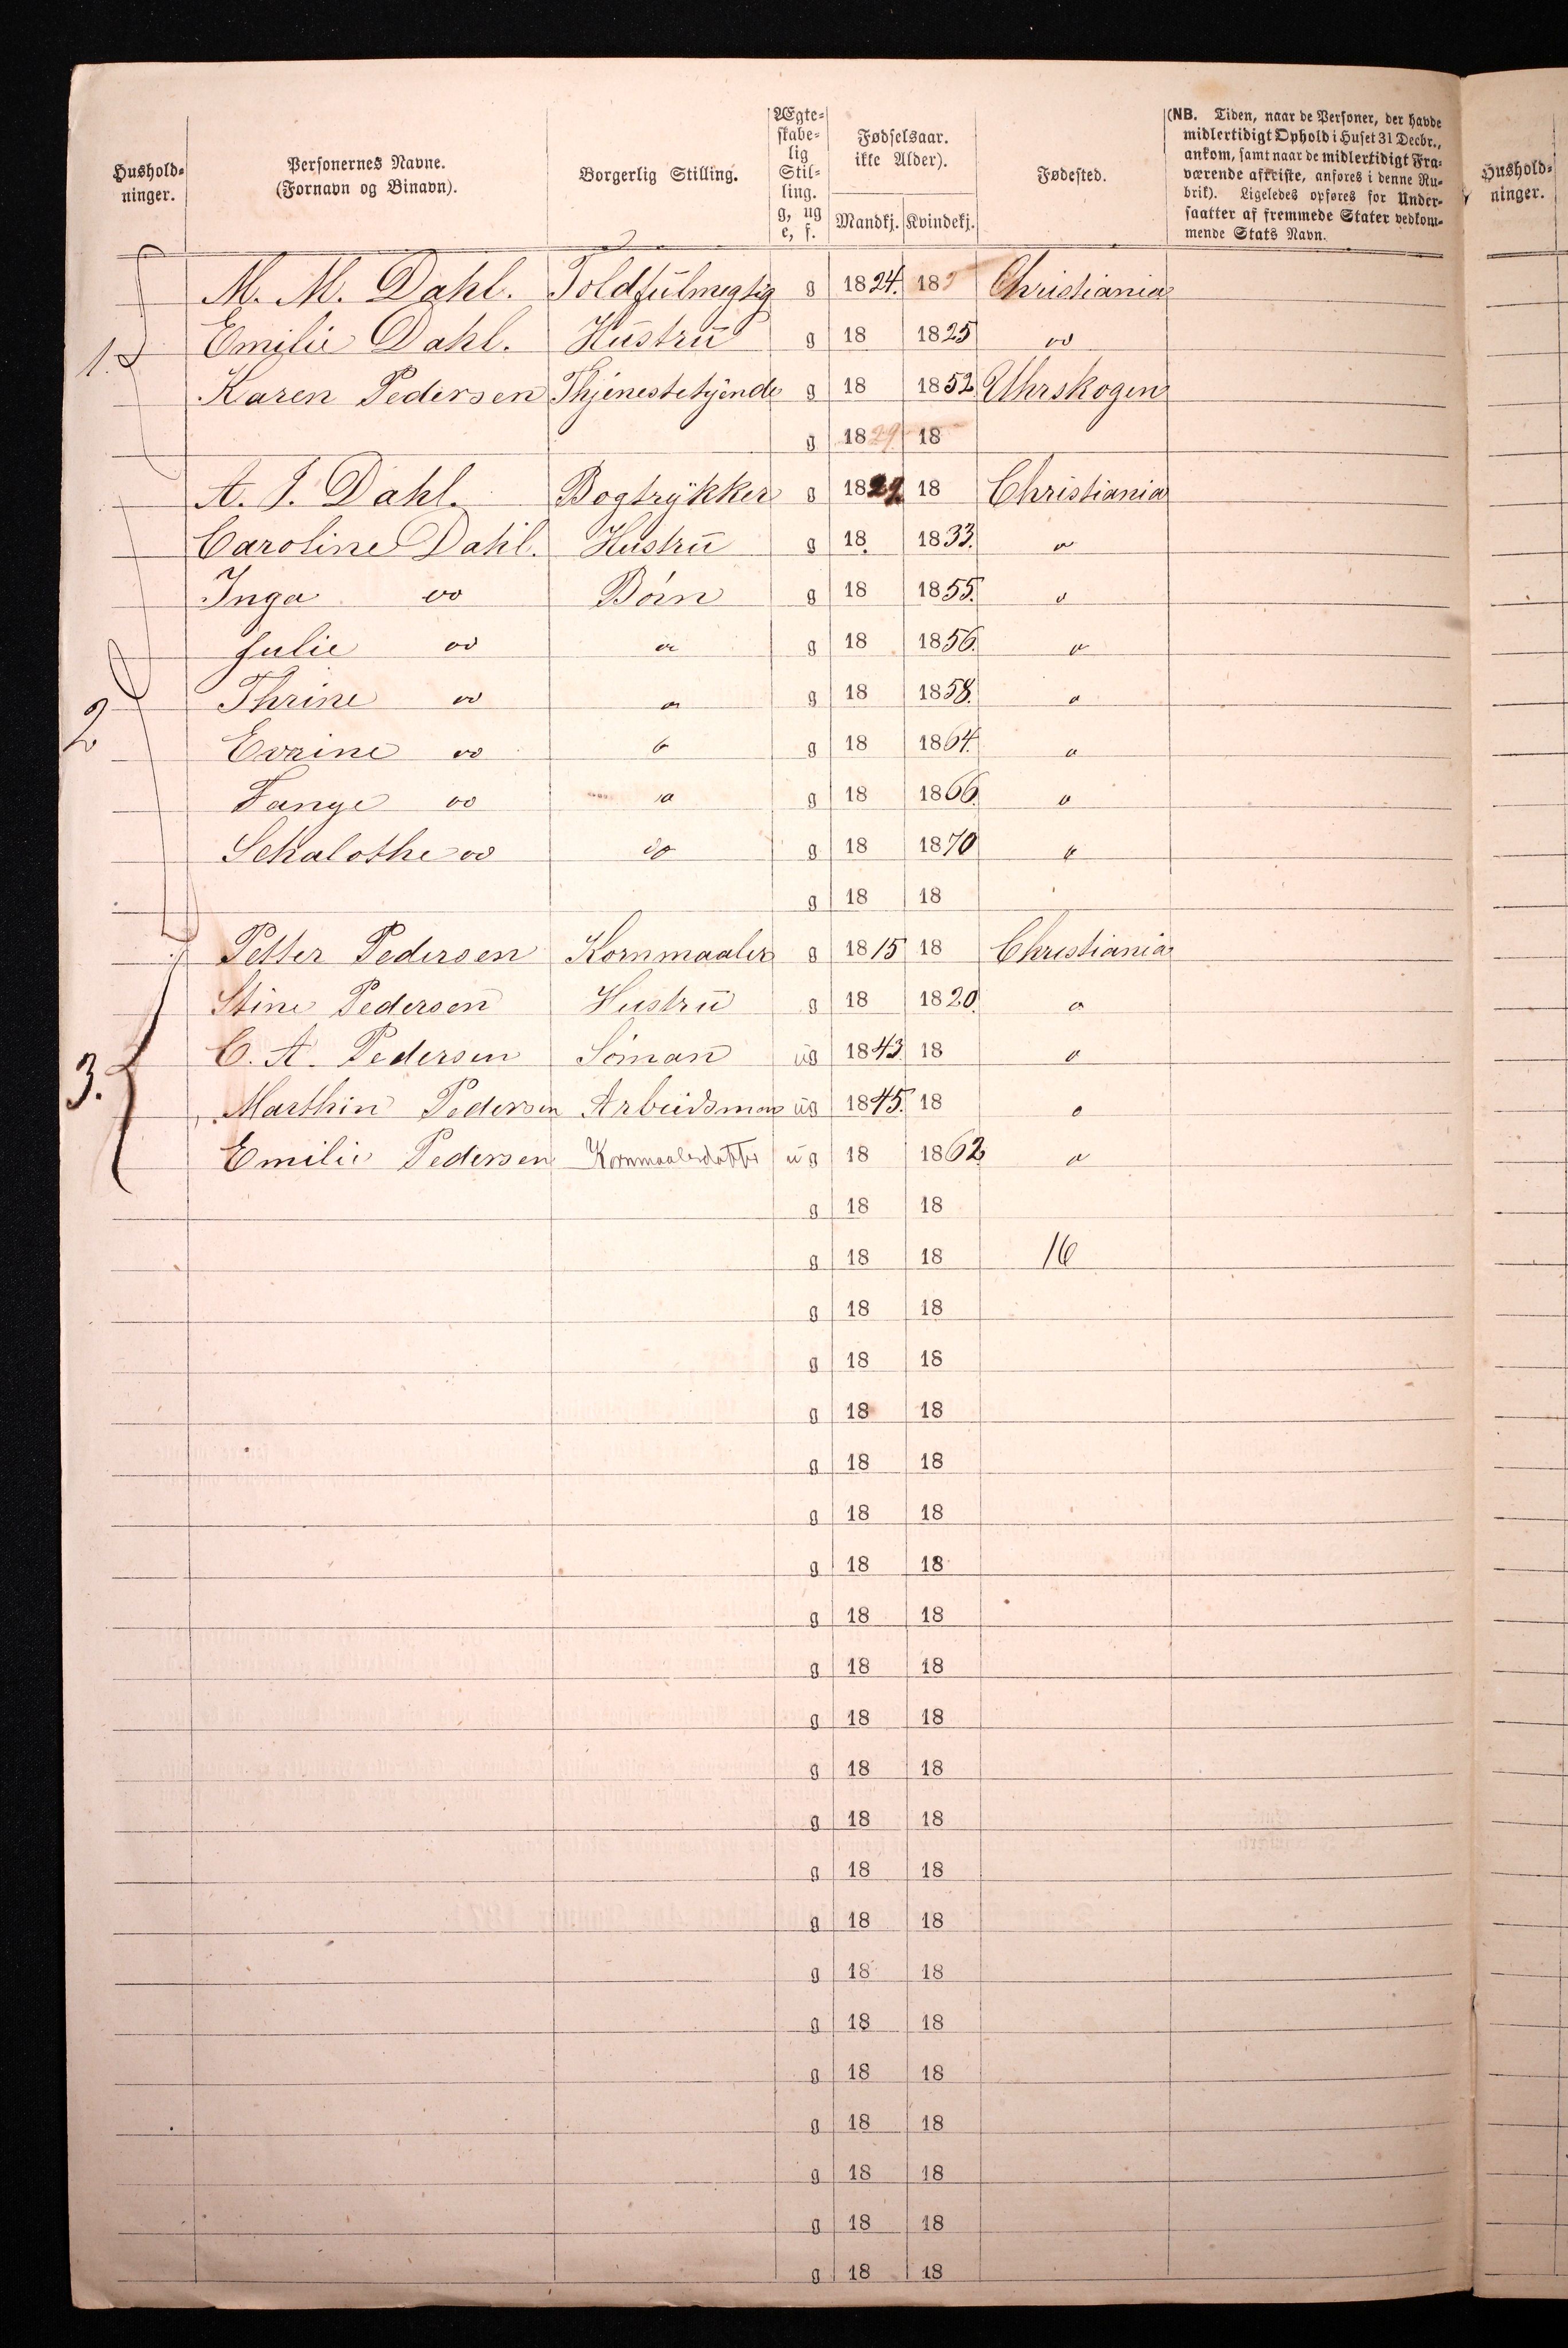 Hushold-
ninger.
Personernes Navne.
(Fornavn og Binavn).
Borgerlig Stilling.
Ægte-
skabe-
lig
Stil-
ling.
g, ug
e, f.
Fødselsaar.
ikke Alder).
Mandkj. Kvindekj.
Fødested.
(NB. Tiden, naar de Personer, der havde
midlertidigt Ophold i Huset 31 Decbr.,
ankom, samt naar de midlertidigt Fra-
værende afreiste, anføres i denne Ru-
brik). Ligeledes opføres for Under-
saatter af fremmede Stater vedkom-
mende Stats Navn.
Hushold-
ninger.
M. M. Dahl. Toldfülmegtig g 1824. 18 Christiania
1. Emilie Dahl. Hüstrü g 18 1825 oo
Karen Pedersen Thjenestetÿende g 18 1852 Uhrskogen
g 1829 18
A. J. Dahl. Bogtrÿkker g 1829 18 Christiania
Caroline Dahl. Hustrü g 18 1833. o
Inga oo Börn g 18 1855. o
Julie oo o g 18 1856. o
Thrine oo o g 18 1858. o
2 Evrine oo o g 18 1864. o
Fange oo o g 18 1866. o
Schalothe oo do g 18 1870 o
g 18 18
Petter Pedersen Kornmaaler g 1815 18 Christiania
Stine Pedersen Hustrü g 18 1820. o
3. C. A. Pedersen Söman üg 1843. 18 o
Marthin Pedersen Arbeidsman üg 1845. 18 o
Emilie Pedersen Kornmaalerdatter üg 18 1862 o
g 18 18
g 18 18 16
g 18 18
g 18 18
g 18 18
g 18 18
g 18 18
g 18 18
g 18 18
g 18 18
g 18 18
g 18 18
g 18 18
g 18 18
g 18 18
g 18 18
g 18 18
g 18 18
g 18 18
g 18 18
g 18 18
g 18 18